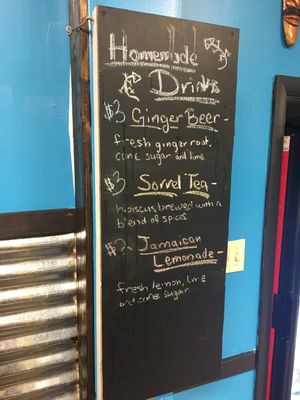 Homemade
Drinks
$3 Ginger Beer -
fresh ginger root,
cane sugar and lime
$3 Sorrel Tea -
hibiscus brewed with a
blend of spices
Jamaican
Lemonade -
fresh lemon, lime
and cane sugar.